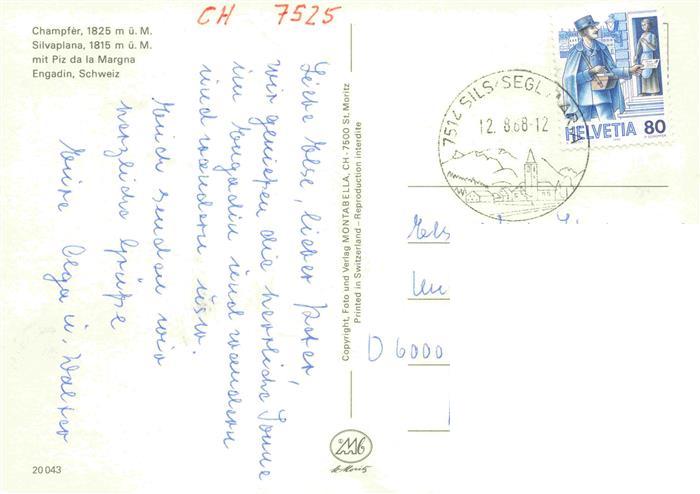 CH 7525
Champfèr, 1825 m ü. M.
Silvaplana, 1815 m ü. M.
mit Piz da la Margna
Engadin, Schweiz
Liebe Else, lieber Peter,
wir genießen die herrliche Sonne
im Engadin und wandern
und wandern usw.
Euch senden wir
herzliche Grüße
Eure Olga u. Walter
20043
Copyright, Foto und Verlag MONTABELLA, CH-7500 St. Moritz
Printed in Switzerland – Reproduction interdite
St. Moritz
7514 SILS-SEGL MARIA
12.8.88-12
HELVETIA 80
Els
Un
D 6000